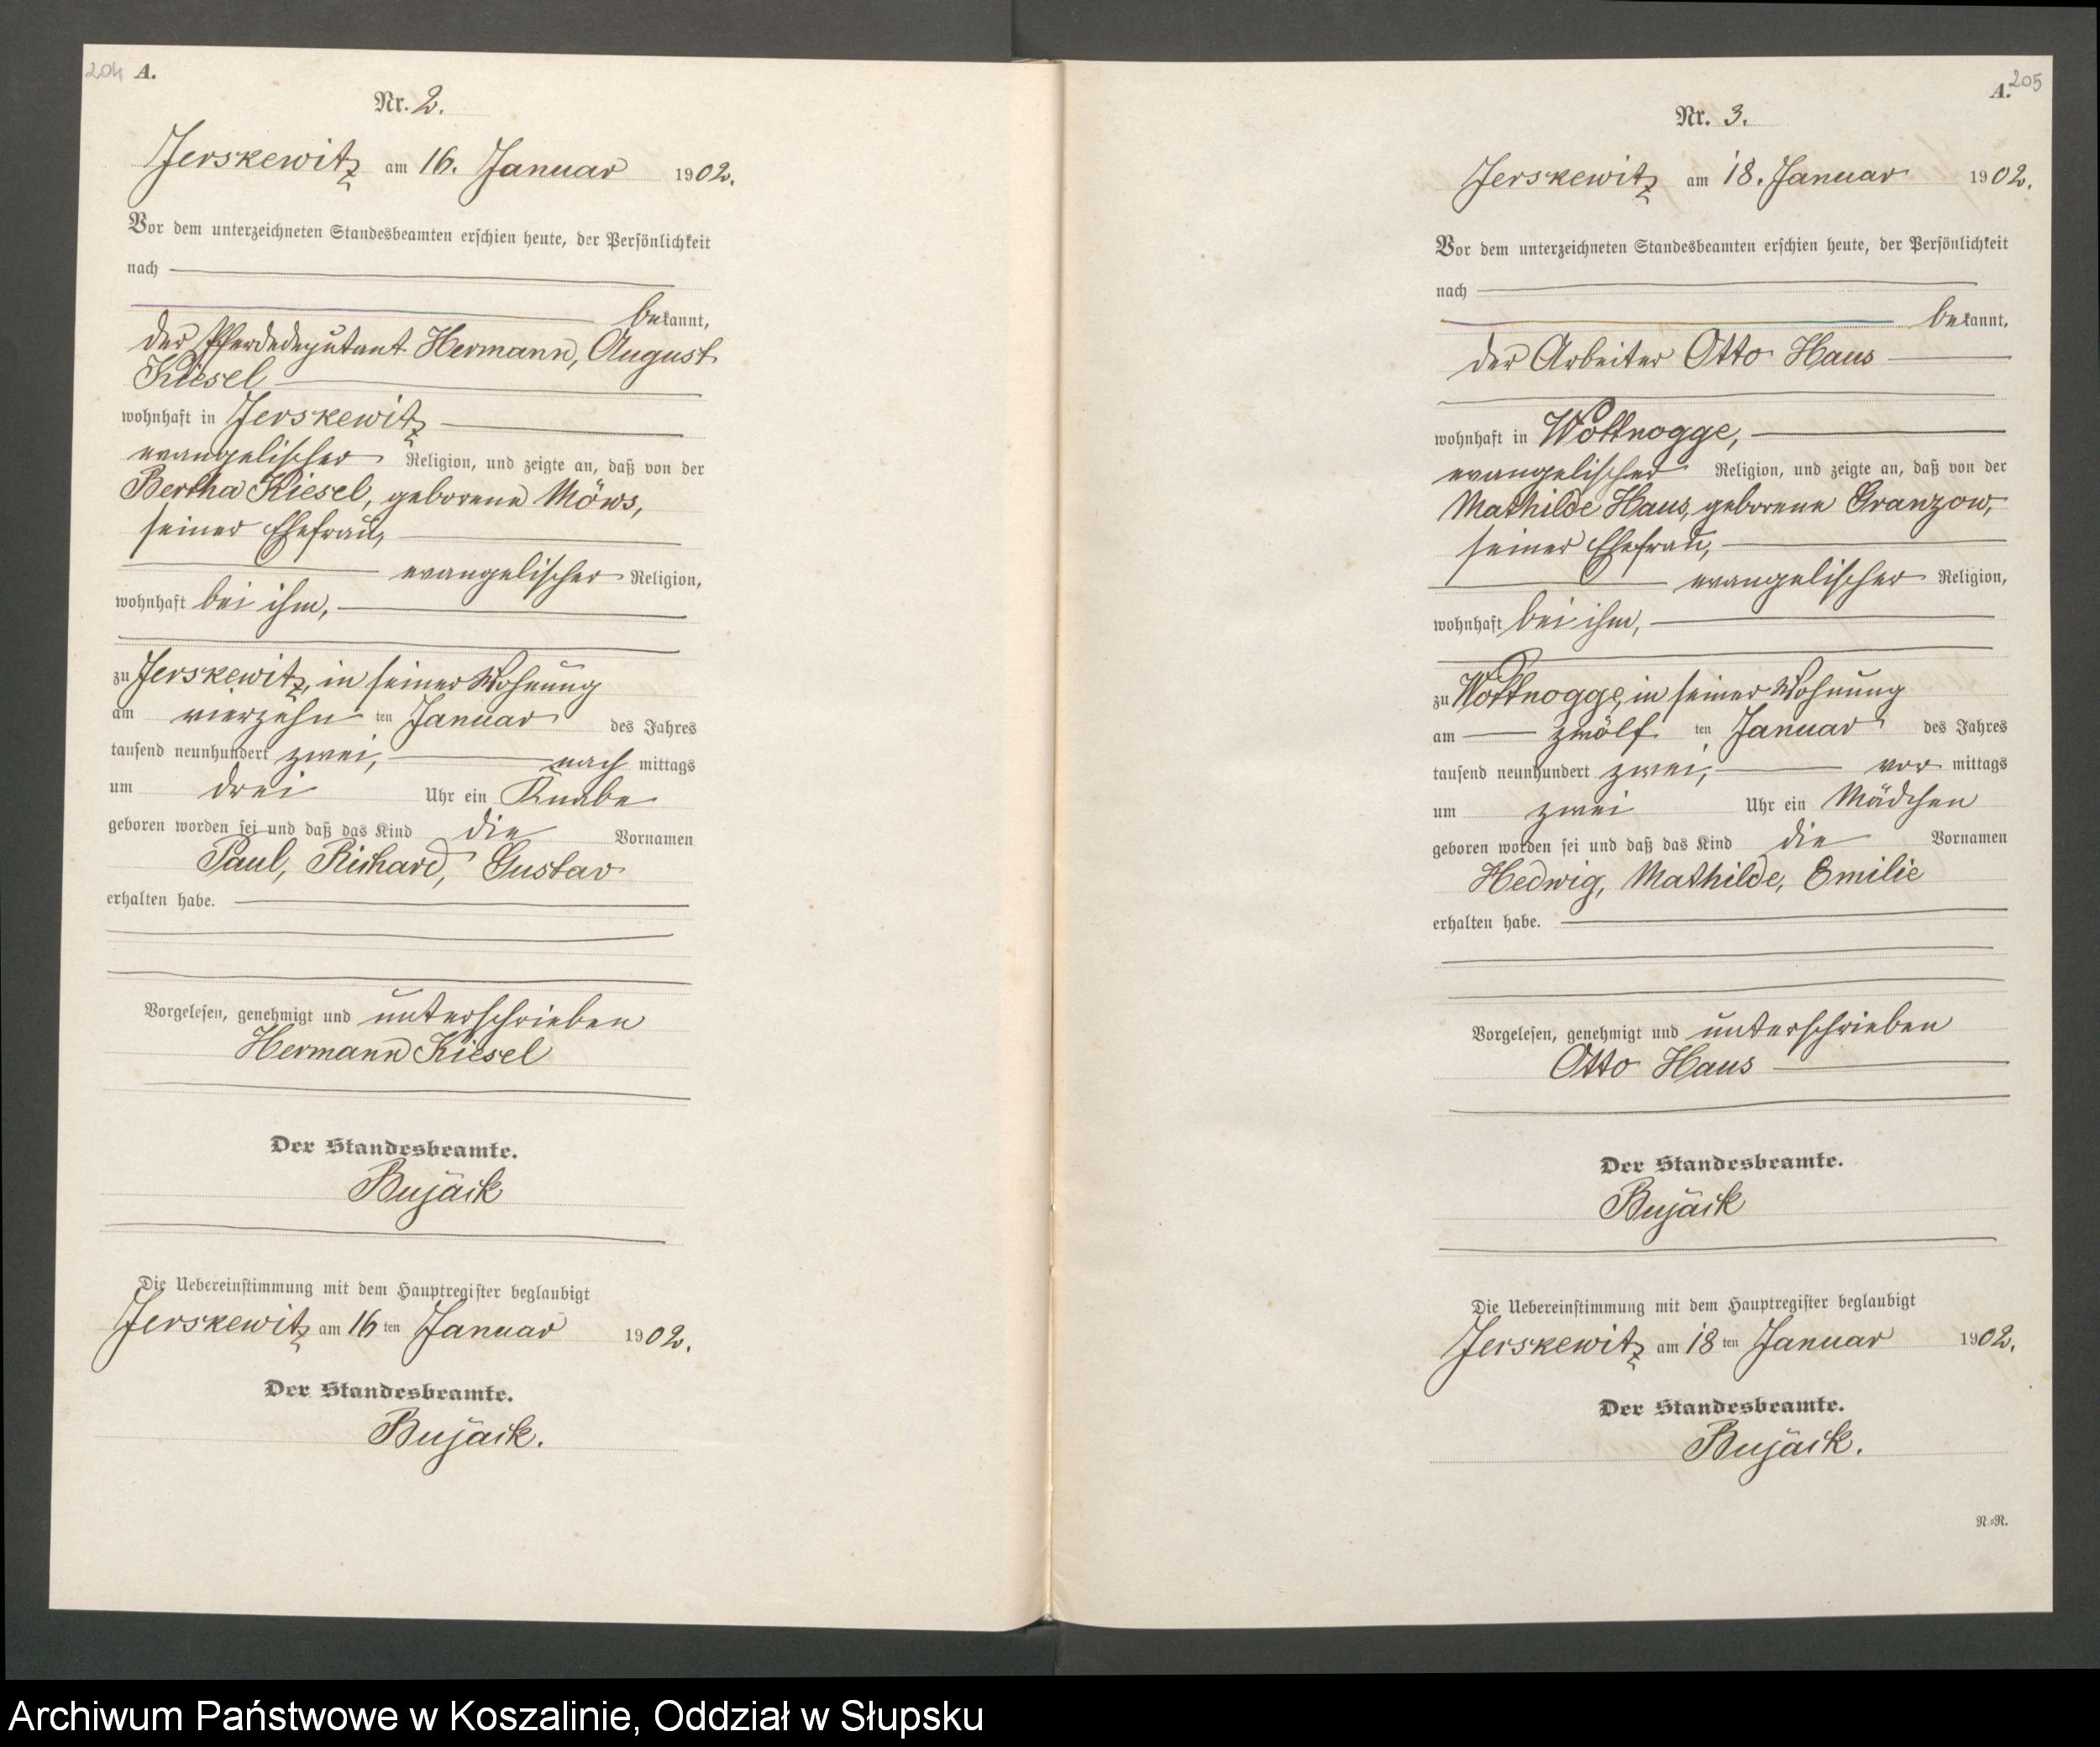 204 A.
Nr. 2.
Jerskewitz am 16. Januar 1902.
Vor dem unterzeichneten Standesbeamten erschien heute, der Persönlichkeit
nach
bekannt,
der Pferdedeputant Hermann, August
Kiesel
wohnhaft in Jerskewitz
evangelischer Religion, und zeigte an, daß von der
Bertha Kiesel, geborene Möws,
seiner Ehefrau,
evangelischer Religion,
wohnhaft bei ihm,
zu Jerskewitz, in seiner Wohnung
am vierzehn ten Januar des Jahres
tausend neunhundert zwei, nach mittags
um drei Uhr ein Knabe
geboren worden sei und daß das Kind die Vornamen
Paul, Richard, Gustav
erhalten habe.
Vorgelesen, genehmigt und unterschrieben
Hermann Kiesel
Der Standesbeamte.
Bujack
Die Uebereinstimmung mit dem Hauptregister beglaubigt
Jerskewitz am 16 ten Januar 1902.
Der Standesbeamte.
Bujack.
A. 205
Nr. 3.
Jerskewitz am 18. Januar 1902.
Vor dem unterzeichneten Standesbeamten erschien heute, der Persönlichkeit
nach
bekannt,
der Arbeiter Otto Haus
wohnhaft in Wottnogge,
evangelischer Religion, und zeigte an, daß von der
Mathilde Haus, geborene Granzow,
seiner Ehefrau,
evangelischer Religion,
wohnhaft bei ihm,
zu Wottnogge, in seiner Wohnung
am zwölf ten Januar des Jahres
tausend neunhundert zwei, vor mittags
um zwei Uhr ein Mädchen
geboren worden sei und daß das Kind die Vornamen
Hedwig, Mathilde, Emilie
erhalten habe.
Vorgelesen, genehmigt und unterschrieben
Otto Haus
Der Standesbeamte.
Bujack
Die Uebereinstimmung mit dem Hauptregister beglaubigt
Jerskewitz am 18 ten Januar 1902.
Der Standesbeamte.
Bujack.
N.=R.
Archiwum Państwowe w Koszalinie, Oddział w Słupsku